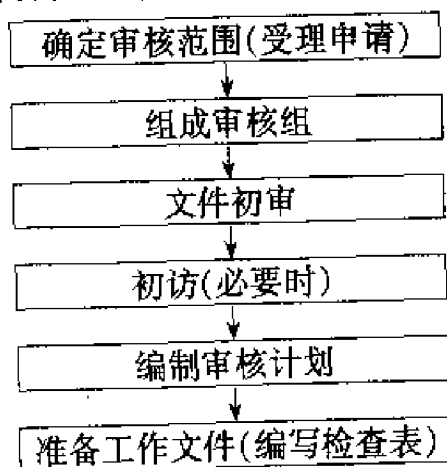 确定审核范围(受理申请)
组成审核组
文件初审
初访(必要时)
编制审核计划
准备工作文件(编写检查表)